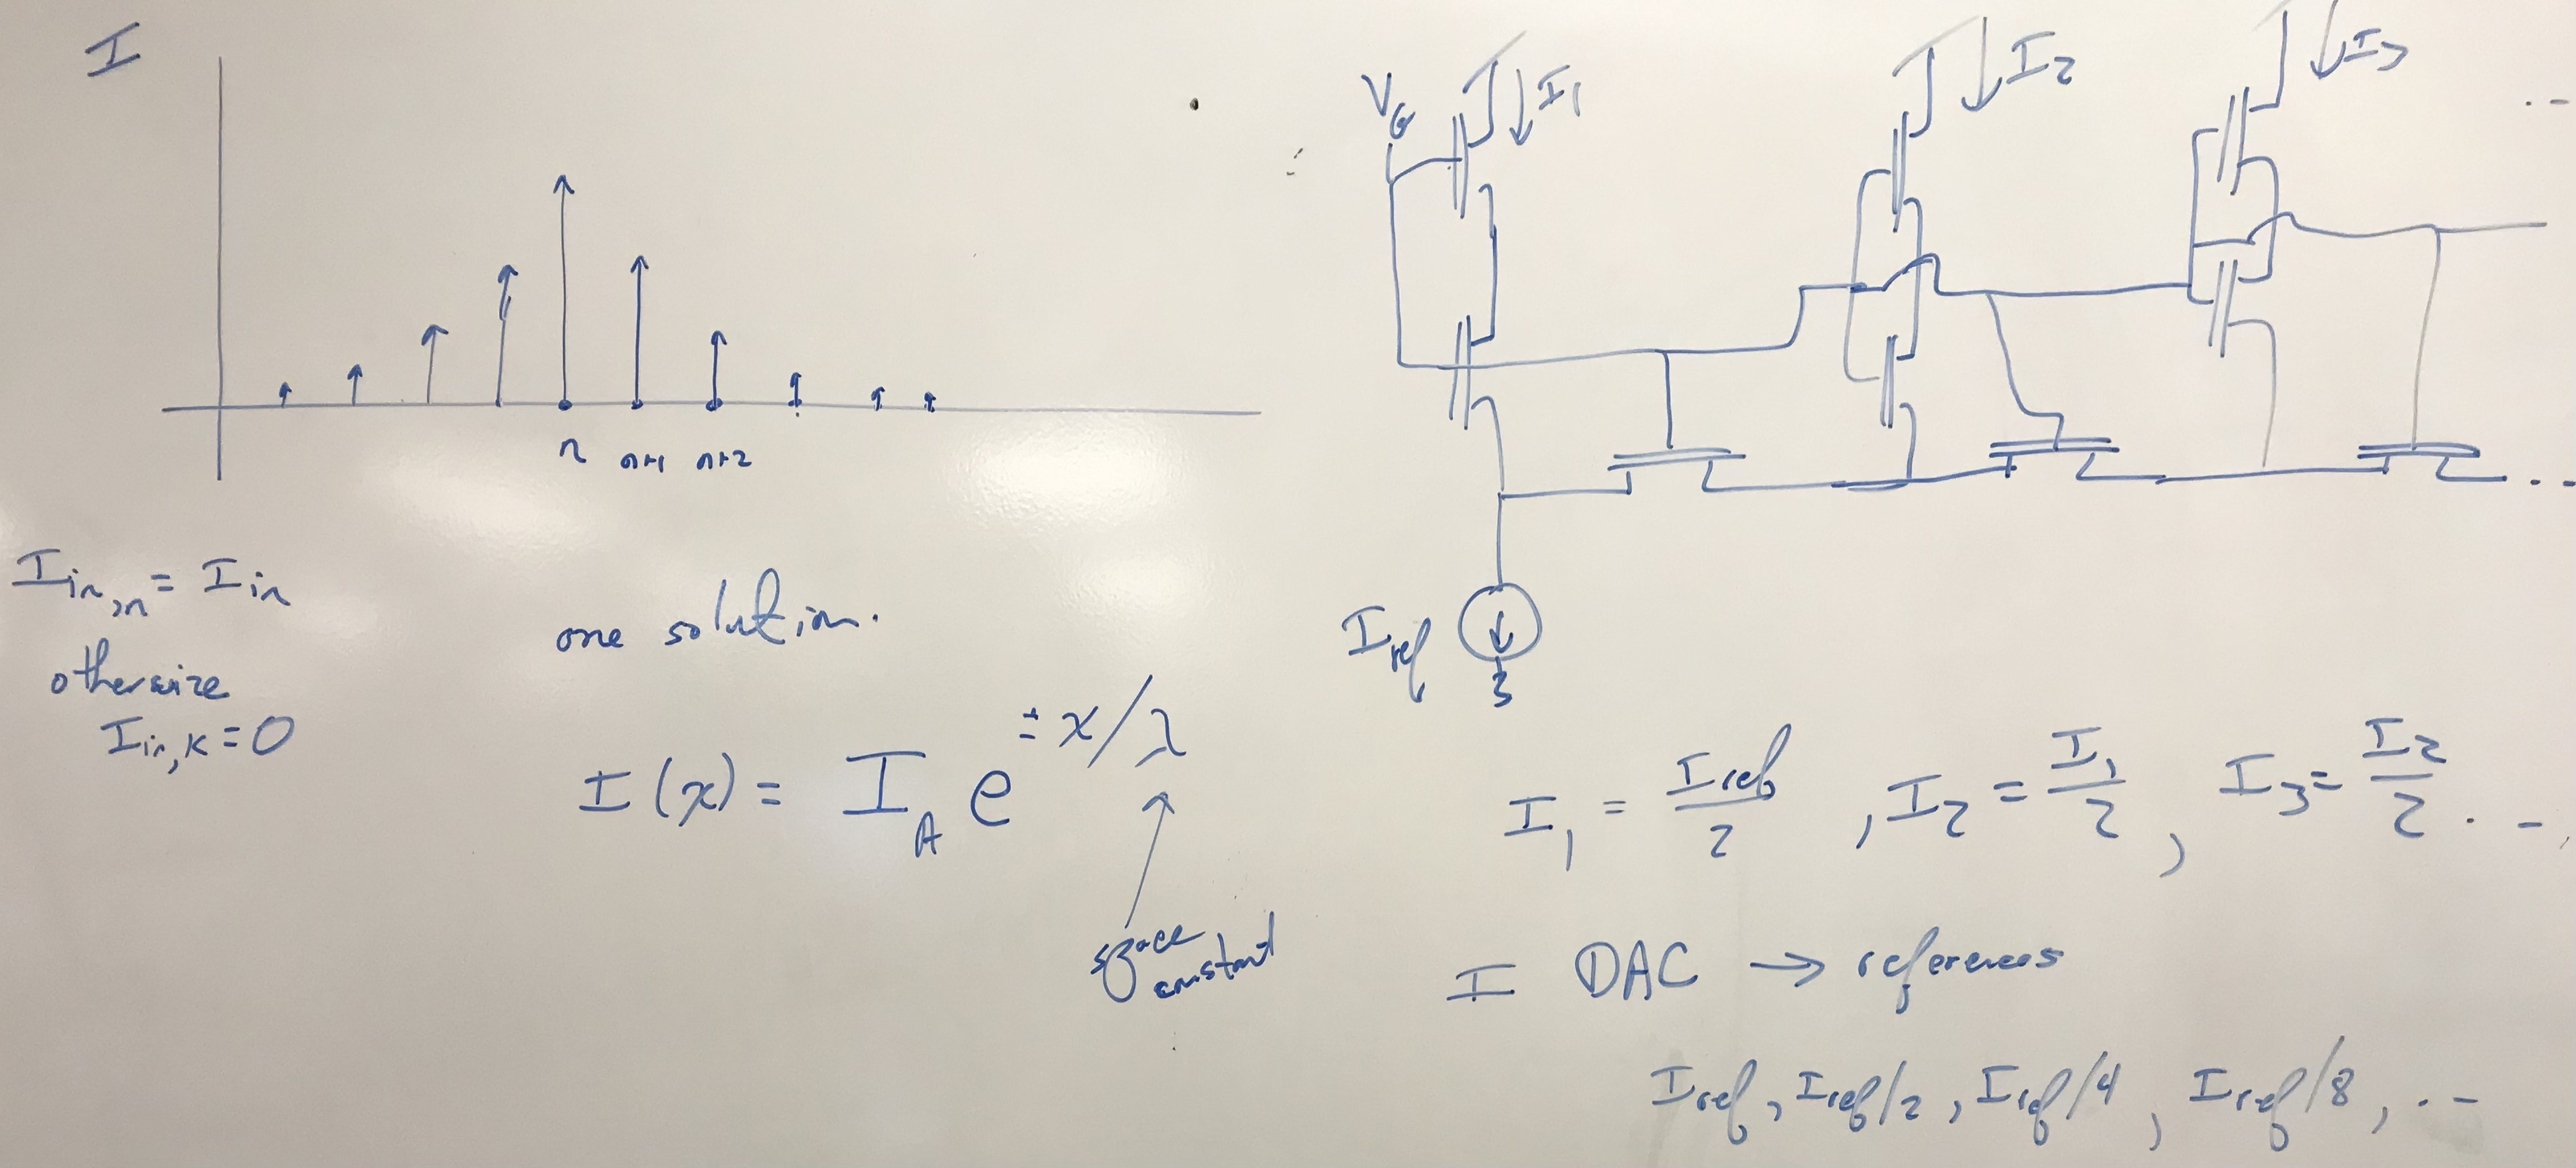 I
n n+1 n+2
I_in,n = I_in
otherwise
I_in,K = 0
one solution.
I(x) = I_A e^{± x/λ}
space
constant
V_G
I_1
I_2
I_3
...
...
I_ref
I_1 = I_ref/2 , I_2 = I_1/2 , I_3 = I_2/2 ...,
I DAC → references
I_ref, I_ref/2, I_ref/4, I_ref/8, ...